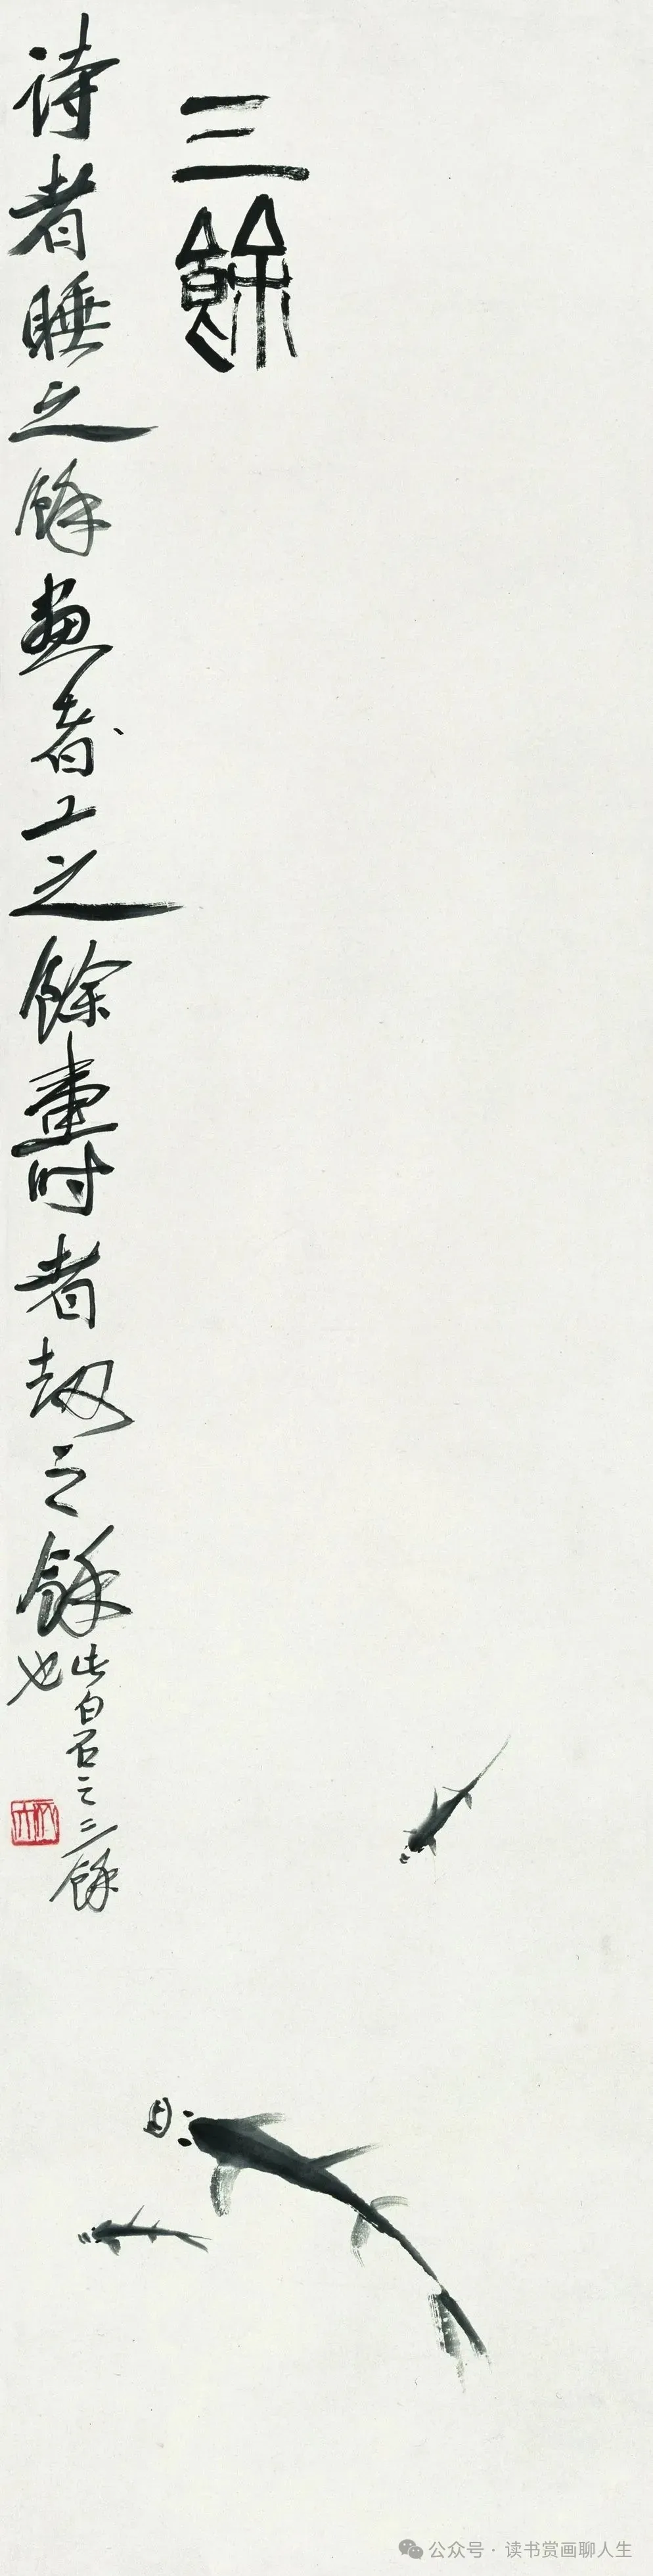 三餘
詩者睡之餘畫者工之餘壽者劫之餘
此白石之三餘
也
公众号 · 读书赏画聊人生